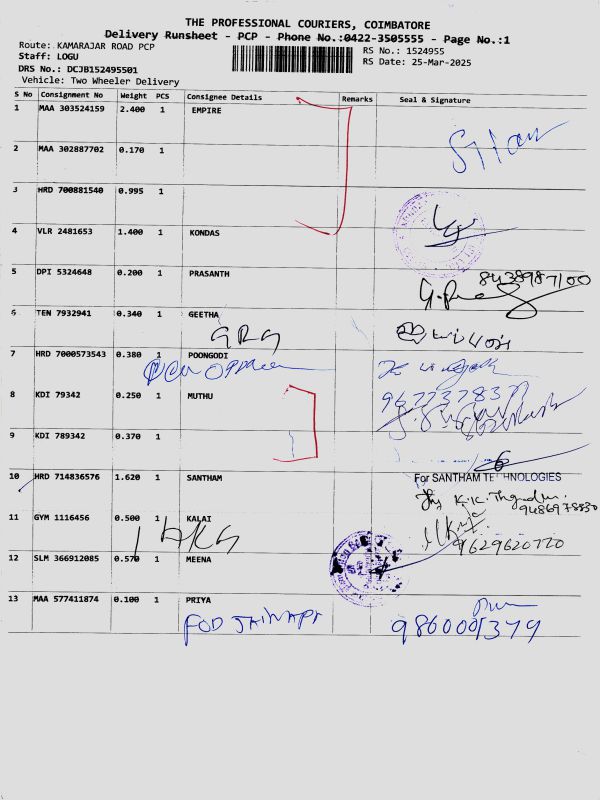 THE PROFESSIONAL COURIERS, COIMBATORE
Delivery Runsheet - PCP - Phone No.:0422-3505555 - Page No.:1
Route: KAMARAJAR ROAD PCP
RS No.: 1524955
Staff: LOGU
RS Date: 25-Mar-2025
DRS No.: DCJB152495501
Vehicle: Two Wheeler Delivery
S No Consignment No Weight PCS Consignee Details Remarks Seal & Signature
1 MAA 303524159 2.400 1 EMPIRE
2 MAA 302887702 0.170 1
3 HRD 700881540 0.995 1
4 VLR 2481653 1.400 1 KONDAS
5 DPI 5324648 0.200 1 PRASANTH
8438987100
6 TEN 7932941 0.340 1 GEETHA
GRG
7 HRD 7000573543 0.380 1 POONGODI
8 KDI 79342 0.250 1 MUTHU
9 KDI 789342 0.370 1
10 HRD 714836576 1.620 1 SANTHAM
For SANTHAM TECHNOLOGIES
11 GYM 1116456 0.500 1 KALAI
9629620720
12 SLM 366912085 0.570 1 MEENA
13 MAA 577411874 0.100 1 PRIYA